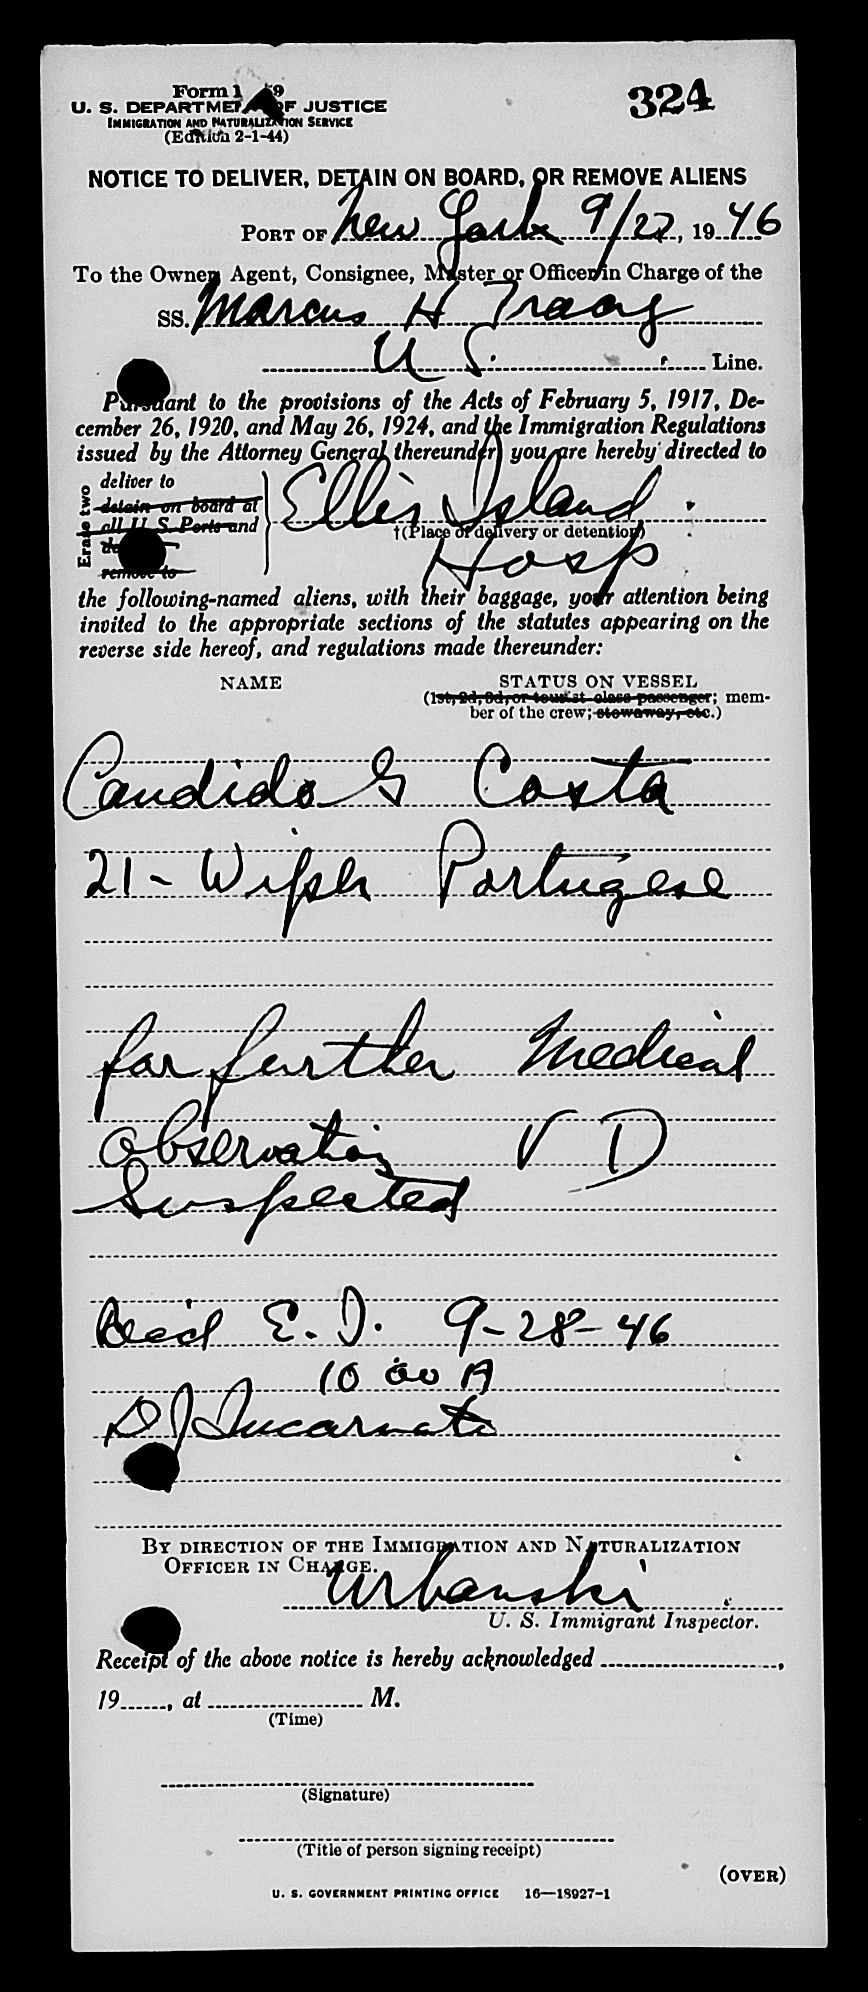 Form 1 9
324
U. S. DEPARTMENT OF JUSTICE
IMMIGRATION AND NATURALIZATION SERVICE
(Edition 2-1-44)
NOTICE TO DELIVER, DETAIN ON BOARD, OR REMOVE ALIENS
PORT OF New York 9/27, 1946
To the Owner, Agent, Consignee, Master or Officer in Charge of the
SS. Marcus H Tracy
U S. Line.
Pursuant to the provisions of the Acts of February 5, 1917, De-
cember 26, 1920, and May 26, 1924, and the Immigration Regulations
issued by the Attorney General thereunder, you are hereby directed to
Erase two
deliver to
detain on board at
all U. S. Ports and
remove to
Ellis Island
†(Place of delivery or detention)
Hosp
the following-named aliens, with their baggage, your attention being
invited to the appropriate sections of the statutes appearing on the
reverse side hereof, and regulations made thereunder:
NAME STATUS ON VESSEL
(1st, 2d, 3d, or tourist class passenger; mem-
ber of the crew; stowaway, etc.)
Candido G Costa
21- Wiper Portugese
for further Medical
observation V D
Suspected
Rec'd E. I. 9-28-46
10 00 A
D J Incarnato
BY DIRECTION OF THE IMMIGRATION AND NATURALIZATION
OFFICER IN CHARGE.
Urbanski
U. S. Immigrant Inspector.
Receipt of the above notice is hereby acknowledged ,
19 , at M.
(Time)
(Signature)
(Title of person signing receipt)
(OVER)
U. S. GOVERNMENT PRINTING OFFICE 16—18927-1